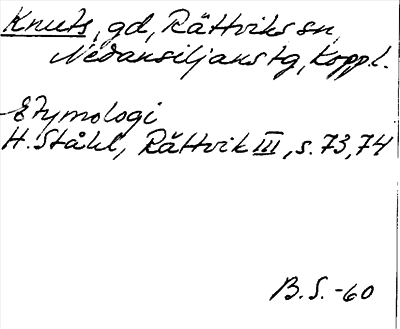 Knuts, gd, Rättviks sn,
Nedansiljans tg, Koppl.
Etymologi
H. Ståhl, Rättvik III, s. 73, 74
B. S. -60